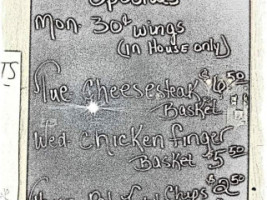 Specials
Mon. 30¢ wings
(in House only)
Tue Cheesesteak
Basket
Wed Chicken finger
Basket $5.50
Chops $2.50